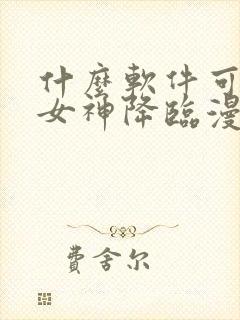 什麼軟件可
女神降臨漫
費舍尔